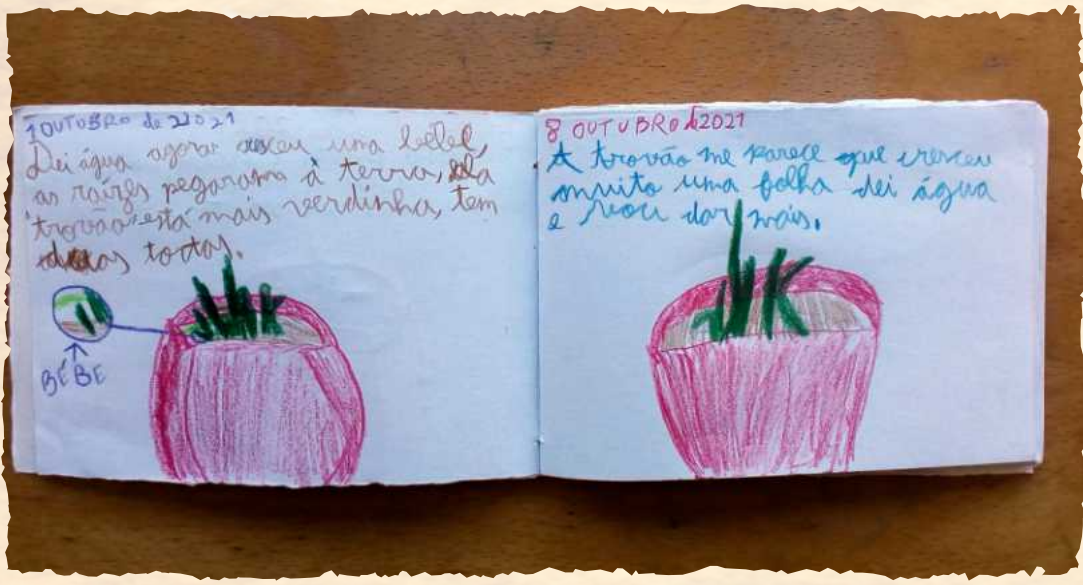 1 OUTUBRO de 2021
Dei água agora cresceu uma bebé,
as raízes pegaram à terra, a
trovão está mais verdinha, tem
duas tortas.
BÉBE
8 OUTUBRO de 2021
A trovão me parece que cresceu
muito uma folha dei água
e vou dar mais.